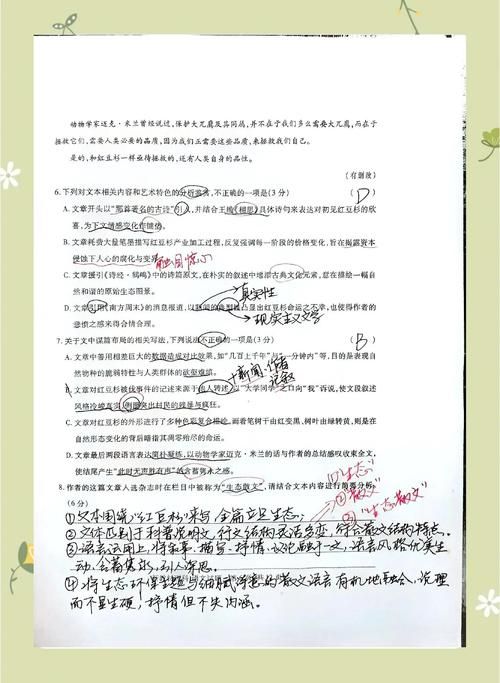 动物学家迈克·米兰曾经说过,保护大兀鹰及其同属,并不在于我们多么需要大兀鹰,而在于
拯救它们,需要人类必要的品质,因为我们正需要这些品质,来拯救我们自己。
是的,和红豆杉一样亟待拯救的,还有人类自身的品性。
(有删改)
6.下列对文本相关内容和艺术特色的分析鉴赏,不正确的一项是(3分) ( D )
A.文章开头以“那首著名的古诗”引入,并结合王维《相思》具体诗句来表达对初见红豆杉的欣
喜,为下文情感变化作铺垫。
B.文章耗费大量笔墨描写红豆杉产业加工过程,反复强调每一阶段的价格变化,旨在揭露资本
侵蚀下人心的腐化与变
触目惊心
C.文章援引《诗经·鸱鸮》中的诗篇原文,在朴实的叙述中增添古典文化元素,意在描绘一幅自
然和谐的原始生态图景。
真实性
D.文章引用《南方周末》的消息报道,以新闻的典型性凸显出红豆杉命运之不幸,也使得作者的
悲愤之感来得合情合理。
现实主义文学
7.关于文中谋篇布局的相关写法,下列说法不正确的一项是(3分) ( B )
A.文章中善用相差巨大的数据造成对比效果,如“几百上千年”与“一分钟内”等,目的是表现自
然物种的脆弱特性与人类群体的欲壑难填。
+新闻、作者
记叙
B.文章对红豆杉被伐事件的记述来源于他人转述,以“大学同学”之口向“我”诉说,使文段叙述
风格冷峻真实,侧面突出村民的残暴与疯狂。
C.文章对红豆杉的外形进行了多种色彩复合描绘,而着笔树干由红变黑,树叶由绿转黄,则是在
自然形态变化的背后暗指其凋零殆尽的命运。
D.文章最后两段语言表达简朴凝练,以动物学家迈克·米兰的话与作者的总结感叹收束全文,
使结尾产生“此时无声胜有声”的含蓄隽永之感。
①“生态”
8.作者的这篇文章入选杂志时在栏目中被称为“生态散文”,请结合文本内容进行简要分析。
②“散文”
(6分)
③“生态散文”
①文本围绕“红豆杉”来写,全篇立足生态;
②文体区别于科普说明文,行文结构灵活多变,符合散文结构特点。
③语言运用上,将叙事、描写、抒情、议论融于一文,语言风格优美生
动、含蓄隽永,引人深思。
④将生态环保主题与细腻诗意的散文语言有机地融合,说理
而不显生硬,抒情但不失内涵。